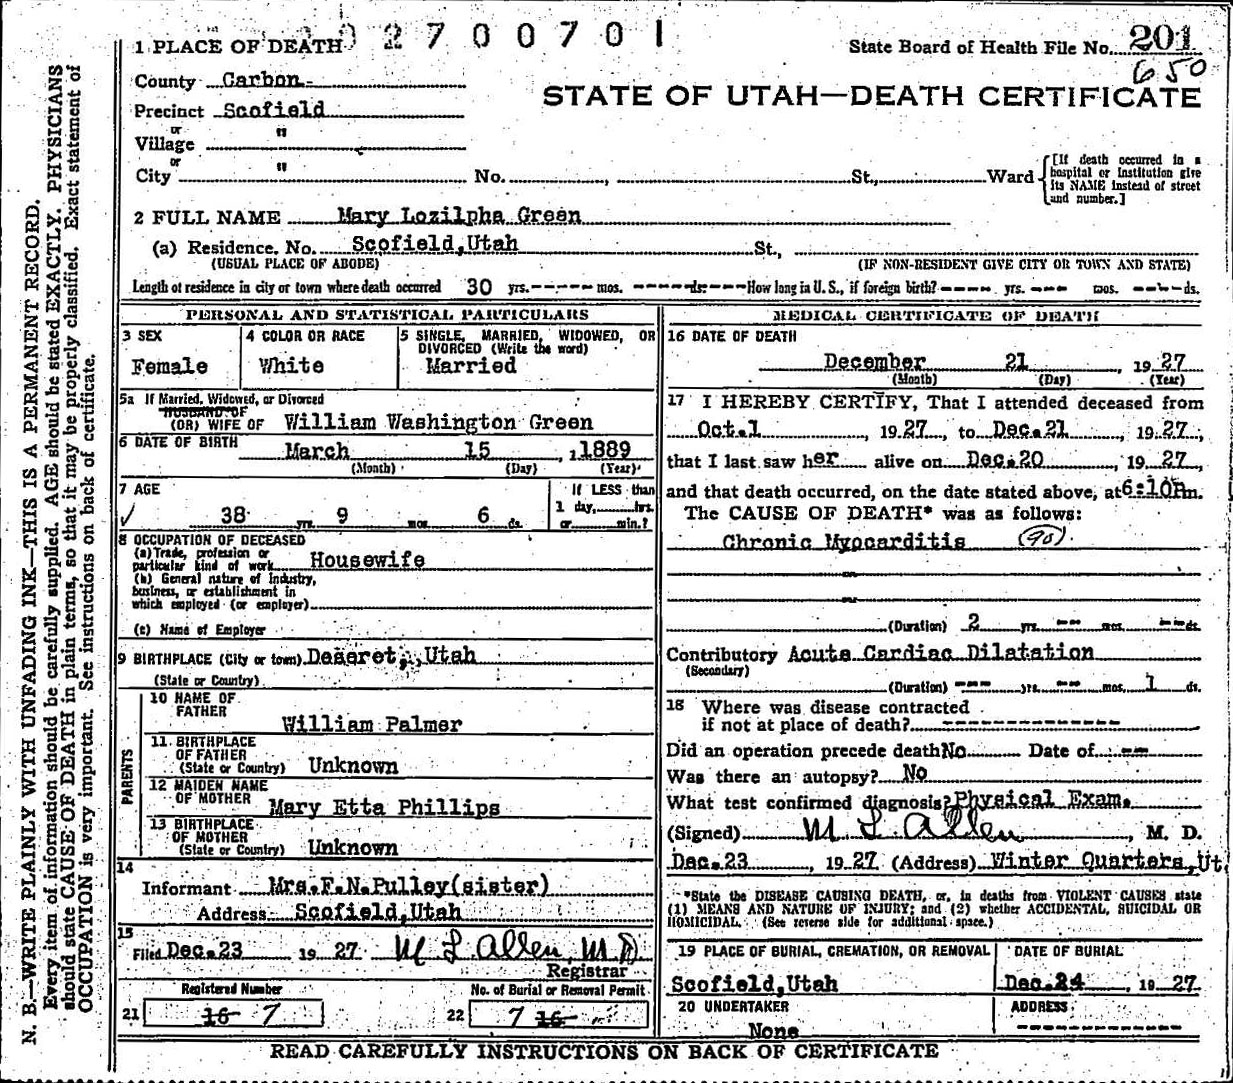 2700701
1 PLACE OF DEATH
State Board of Health File No. 201
650
County Carbon
STATE OF UTAH—DEATH CERTIFICATE
Precinct Scofield
or
Village "
or
City " No. , St., Ward
[If death occurred in a hospital or institution give its NAME instead of street and number.]
2 FULL NAME Mary Lozilpha Green
(a) Residence. No. Scofield,Utah St.,
(USUAL PLACE OF ABODE) (IF NON-RESIDENT GIVE CITY OR TOWN AND STATE)
Length of residence in city or town where death occurred 30 yrs. ---- mos. ---- ds. ---- How long in U. S., if foreign birth? ---- yrs. --- mos. ---- ds.
PERSONAL AND STATISTICAL PARTICULARS
3 SEX
Female
4 COLOR OR RACE
White
5 SINGLE, MARRIED, WIDOWED, OR
DIVORCED (Write the word)
Married
5a If Married, Widowed, or Divorced
HUSBAND OF
(OR) WIFE OF William Washington Green
6 DATE OF BIRTH March 15 , 1889
(Month) (Day) (Year)
7 AGE
✓ 38 yrs. 9 mos. 6 ds.
If LESS than
1 day, hrs.
or min.?
8 OCCUPATION OF DECEASED
(a) Trade, profession or
particular kind of work Housewife
(b) General nature of Industry,
business, or establishment in
which employed (or employer)
(c) Name of Employer
9 BIRTHPLACE (City or town) Deseret, Utah
(State or Country)
PARENTS
10 NAME OF
FATHER William Palmer
11 BIRTHPLACE
OF FATHER
(State or Country) Unknown
12 MAIDEN NAME
OF MOTHER Mary Etta Phillips
13 BIRTHPLACE
OF MOTHER
(State or Country) Unknown
14
Informant Mrs.F.N.Pulley(sister)
Address Scofield,Utah
15
Filed Dec.23 1927 M L Allen, M D
Registrar
Registered Number
21 16 7
No. of Burial or Removal Permit
22 7 16
MEDICAL CERTIFICATE OF DEATH
16 DATE OF DEATH
December 21 , 1927
(Month) (Day) (Year)
17 I HEREBY CERTIFY, That I attended deceased from
Oct.1 , 1927, to Dec.21 , 1927,
that I last saw her alive on Dec.20 , 1927,
and that death occurred, on the date stated above, at 6:10Pm.
The CAUSE OF DEATH* was as follows:
Chronic Myocarditis (90)
(Duration) 2 yrs. -- mos. -- ds.
Contributory Acute Cardiac Dilatation
(Secondary)
(Duration) --- yrs. -- mos. 1 ds.
18 Where was disease contracted
if not at place of death? ----------------
Did an operation precede death No Date of --
Was there an autopsy? No
What test confirmed diagnosis? Physical Exam.
(Signed) M L Allen , M. D.
Dec.23 , 1927 (Address) Winter Quarters,Ut.
*State the DISEASE CAUSING DEATH, or, in deaths from VIOLENT CAUSES state
(1) MEANS AND NATURE OF INJURY; and (2) whether ACCIDENTAL, SUICIDAL OR
HOMICIDAL. (See reverse side for additional space.)
19 PLACE OF BURIAL, CREMATION, OR REMOVAL
Scofield,Utah
DATE OF BURIAL
Dec.24 , 1927
20 UNDERTAKER
None
ADDRESS
----------------
READ CAREFULLY INSTRUCTIONS ON BACK OF CERTIFICATE
N. B.—WRITE PLAINLY WITH UNFADING INK—THIS IS A PERMANENT RECORD.
Every item of information should be carefully supplied. AGE should be stated EXACTLY. PHYSICIANS
should state CAUSE OF DEATH in plain terms, so that it may be properly classified. Exact statement of
OCCUPATION is very important. See instructions on back of certificate.